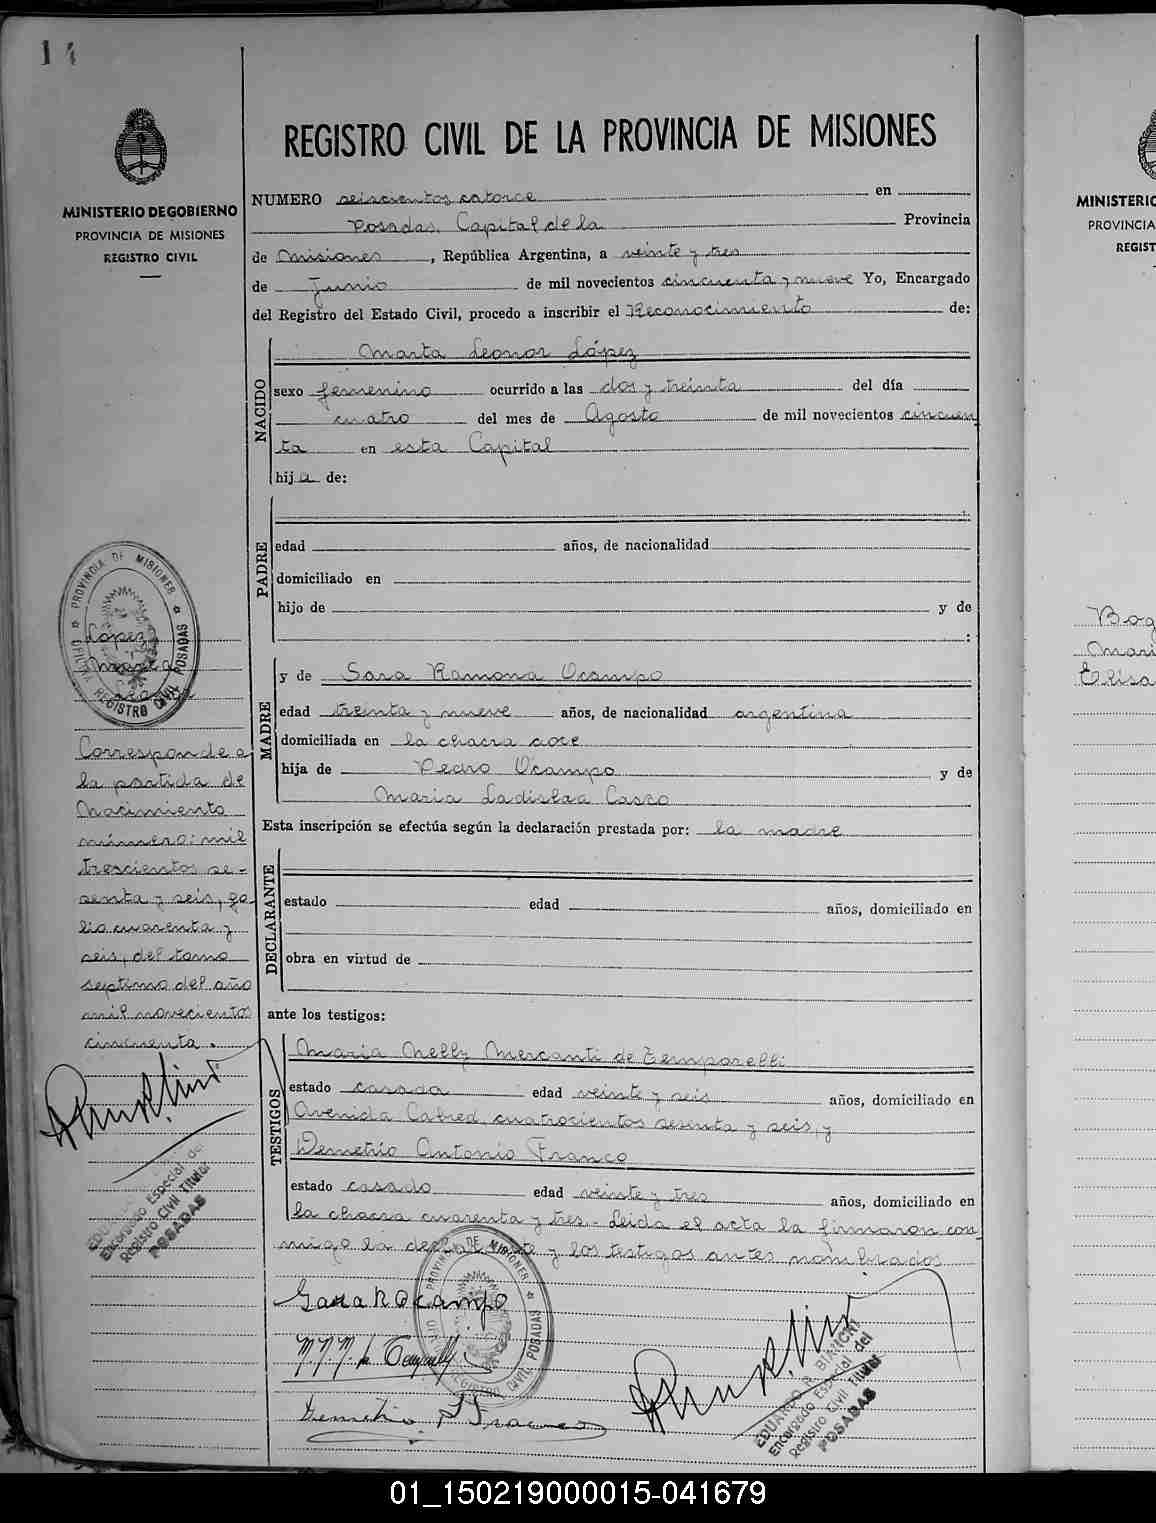 14
MINISTERIO DE GOBIERNO
PROVINCIA DE MISIONES
REGISTRO CIVIL
REGISTRO CIVIL DE LA PROVINCIA DE MISIONES
NUMERO seiscientos catorce en
Posadas, Capital de la Provincia
de Misiones, República Argentina, a veinte y tres
de Junio de mil novecientos cincuenta y nueve Yo, Encargado
del Registro del Estado Civil, procedo a inscribir el Reconocimiento de:
NACIDO
Marta Leonor López
sexo femenino ocurrido a las dos y treinta del día
cuatro del mes de Agosto de mil novecientos cincuen
ta en esta Capital
hija de:
PADRE
edad años, de nacionalidad
domiciliado en
hijo de y de
:
MADRE
y de Sara Ramona Ocampo
edad treinta y nueve años, de nacionalidad argentina
domiciliada en la chacra doce
hija de Pedro Ocampo y de
Maria Ladislaa Casco
Esta inscripción se efectúa según la declaración prestada por: la madre
DECLARANTE
estado edad años, domiciliado en
obra en virtud de
ante los testigos:
TESTIGOS
Maria Nelly Mercanti de Temporelli
estado casada edad veinte y seis años, domiciliado en
Avenida Cabred, cuatrocientos sesenta y seis, y
Demetrio Antonio Franco
estado casado edad veinte y tres años, domiciliado en
la chacra cuarenta y tres.- Leida el acta la firmaron con
migo la declarante y los testigos antes nombrados
Sara R Ocampo
M. N. M. de Temporelli
Demetrio A Franco
EDUARDO R. BIANCHI
Encargado Especial del
Registro Civil Titular
POSADAS
PROVINCIA DE MISIONES
REGISTRO CIVIL POSADAS
López
Marta
Corresponde a
la partida de
Nacimiento
número: mil
trescientos se-
senta y seis, fo-
lio cuarenta y
seis, del tomo
septimo del año
mil novecientos
cincuenta.
Encargado Especial del
Registro Civil Titular
POSADAS
PROVINCIA DE MISIONES
REGISTRO CIVIL POSADAS
MINISTERIO
PROVINCIA
REGIST
Bog
Mari
Elisa
01_150219000015-041679